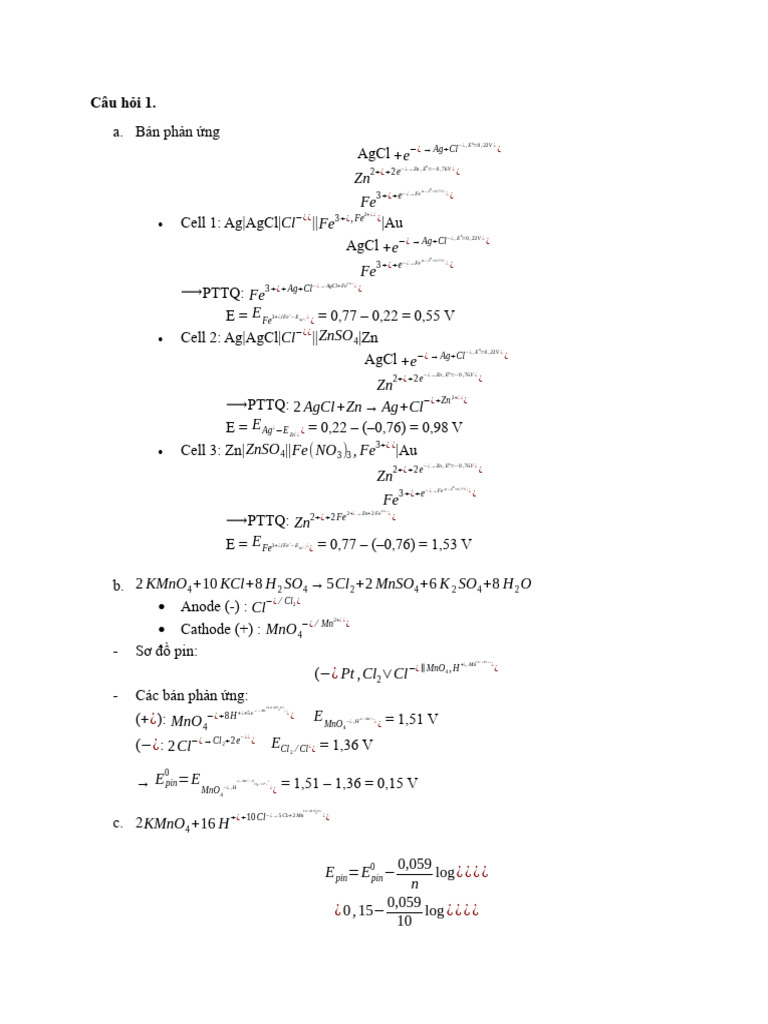 Câu hỏi 1.
a. Bán phản ứng
AgCl +e^−¿→Ag+Cl^−¿,E°=0,22V¿¿
Zn^2+¿+2e^−¿→Zn,E°=−0,76V¿¿
Fe^3+¿+e^−¿→Fe
• Cell 1: Ag|AgCl|Cl^−¿¿||Fe^3+¿,Fe^2+¿¿|Au
AgCl +e^−¿→Ag+Cl^−¿,E°=0,22V¿¿
Fe^3+¿+e^−¿→Fe
⟶PTTQ: Fe^3+¿+Ag+Cl^−¿→AgCl+Fe
E = E_Fe^3+ = 0,77 – 0,22 = 0,55 V
• Cell 2: Ag|AgCl|Cl^−¿¿||ZnSO_4|Zn
AgCl +e^−¿→Ag+Cl^−¿,E°=0,22V¿¿
Zn^2+¿+2e^−¿→Zn,E°=−0,76V¿¿
⟶PTTQ: 2 AgCl+Zn→Ag+Cl^−¿+Zn^2+¿¿
E = E_Ag = 0,22 – (–0,76) = 0,98 V
• Cell 3: Zn|ZnSO_4||Fe(NO_3)_3,Fe^3+¿¿|Au
Zn^2+¿+2e^−¿→Zn,E°=−0,76V¿¿
Fe^3+¿+e^−¿→Fe
⟶PTTQ: Zn^2+¿+2Fe^2+¿→Zn+2Fe
E = E_Fe^3+ = 0,77 – (–0,76) = 1,53 V
b. 2 KMnO_4+10 KCl+8 H_2SO_4→5Cl_2+2 MnSO_4+6 K_2SO_4+8 H_2O
• Anode (-) : Cl^−¿/Cl_2¿
• Cathode (+) : MnO_4^−¿/Mn^2+¿¿
- Sơ đồ pin:
(−¿Pt,Cl_2∨Cl^−¿∥MnO_4,H^+¿,Mn
- Các bán phản ứng:
(+¿): MnO_4^−¿+8H^+¿+5e E_MnO_4^−¿,H = 1,51 V
(−¿: 2Cl^−¿→Cl_2+2e^−¿¿ E_Cl_2/Cl¿ = 1,36 V
→ E^0_pin=E_MnO_4^−¿,H = 1,51 – 1,36 = 0,15 V
c. 2KMnO_4+16 H^+¿+10Cl^−¿→5Cl+2Mn
E_pin=E^0_pin−0,059/n log¿¿¿¿
¿0,15−0,059/10 log¿¿¿¿